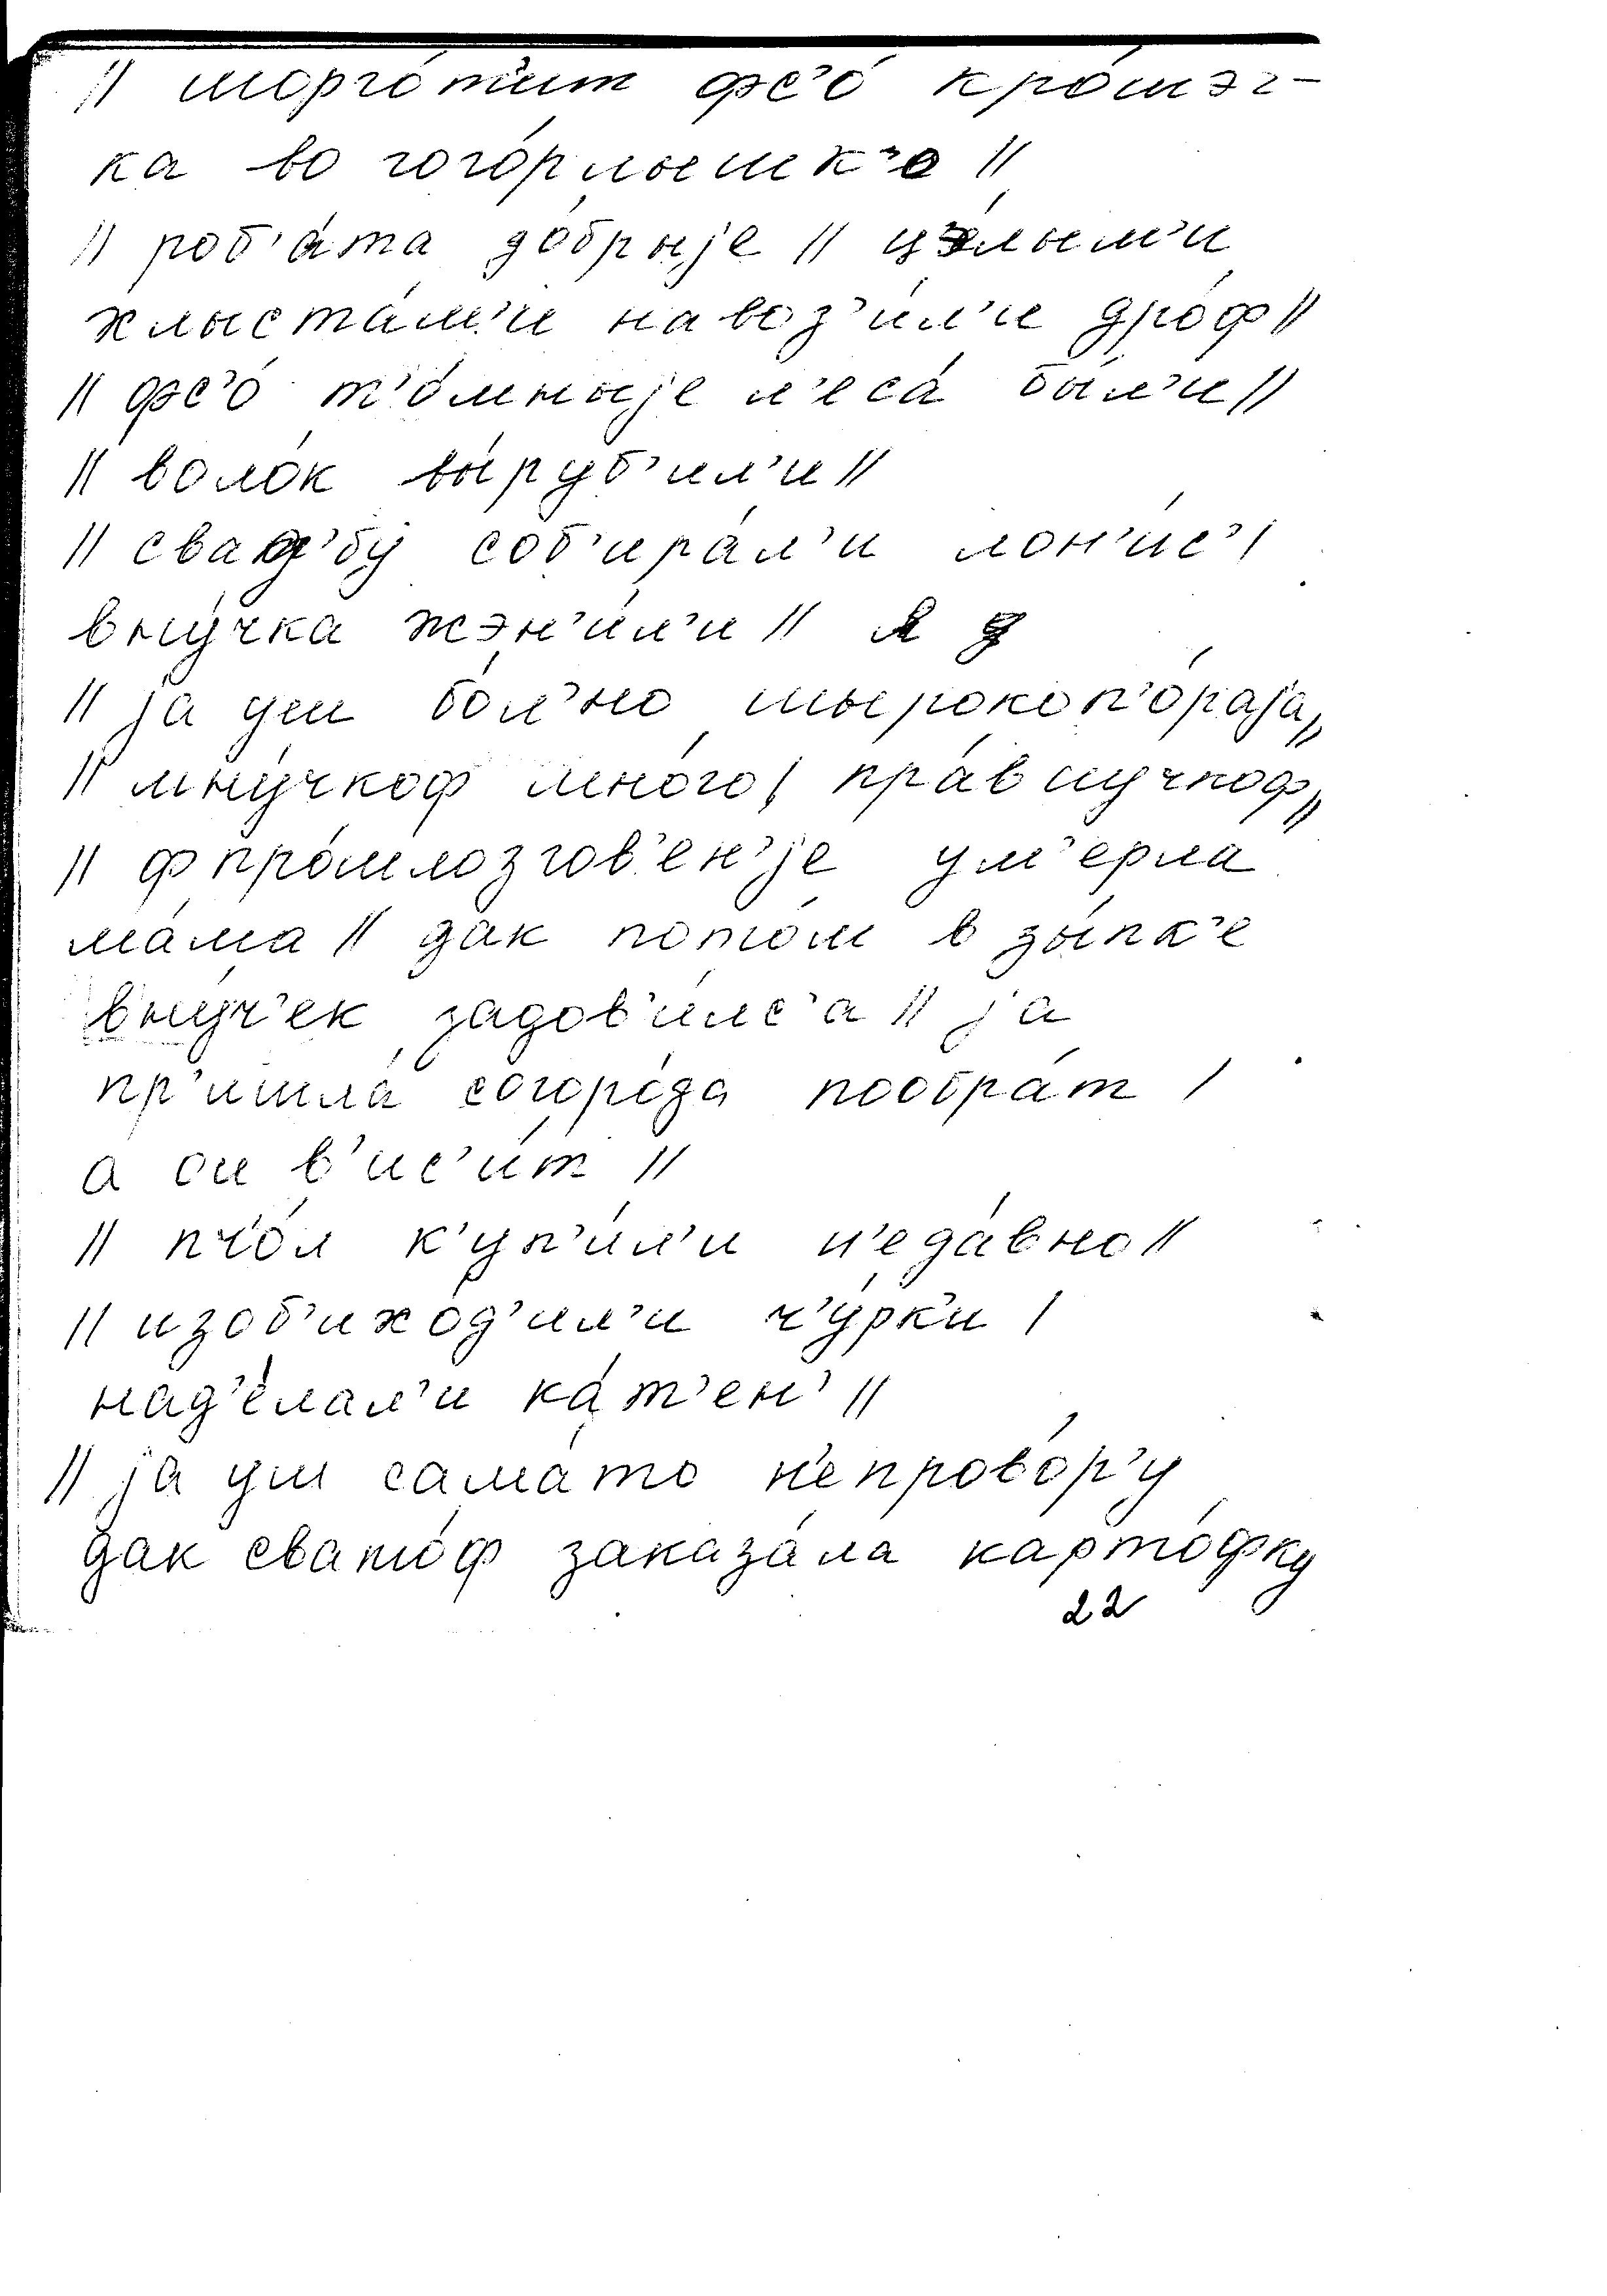 // шорго́т'ит фс'о́ кро́шэч-
ка во гого́рлышк'е //
// роб'а́та до́брыје // цэ́лым'и
хлыста́м'и навоз'и́л'и дро́ф //
// фс'о́ т'о́мныје л'еса́ бы́л'и //
// воло́к вы́руб'ил'и //
// сва́д'бу соб'ира́л'и лон'и́с' /
вну́чка жэн'и́л'и //
// ја́ уш бо́л'но шырокоп'о́раја //
// мну́чкоф мно́го / пра́внучкоф //
// фпро́шлозгов'ен'је ум'ерла
ма́ма // дак пото́м в зы́пк'е
вну́ч'ек задов'и́лс'а // ја
пр'ишла́ согоро́да пообра́т /
а он в'ис'и́т //
// пч'о́л к'уп'и́л'и н'еда́вно //
// изоб'ихо́д'ил'и ч'у́рк'и /
над'е́лал'и ка́т'ен' //
// ја́ уш сама́то н'епрово́р'у
дак свато́ф заказа́ла карто́фку
22